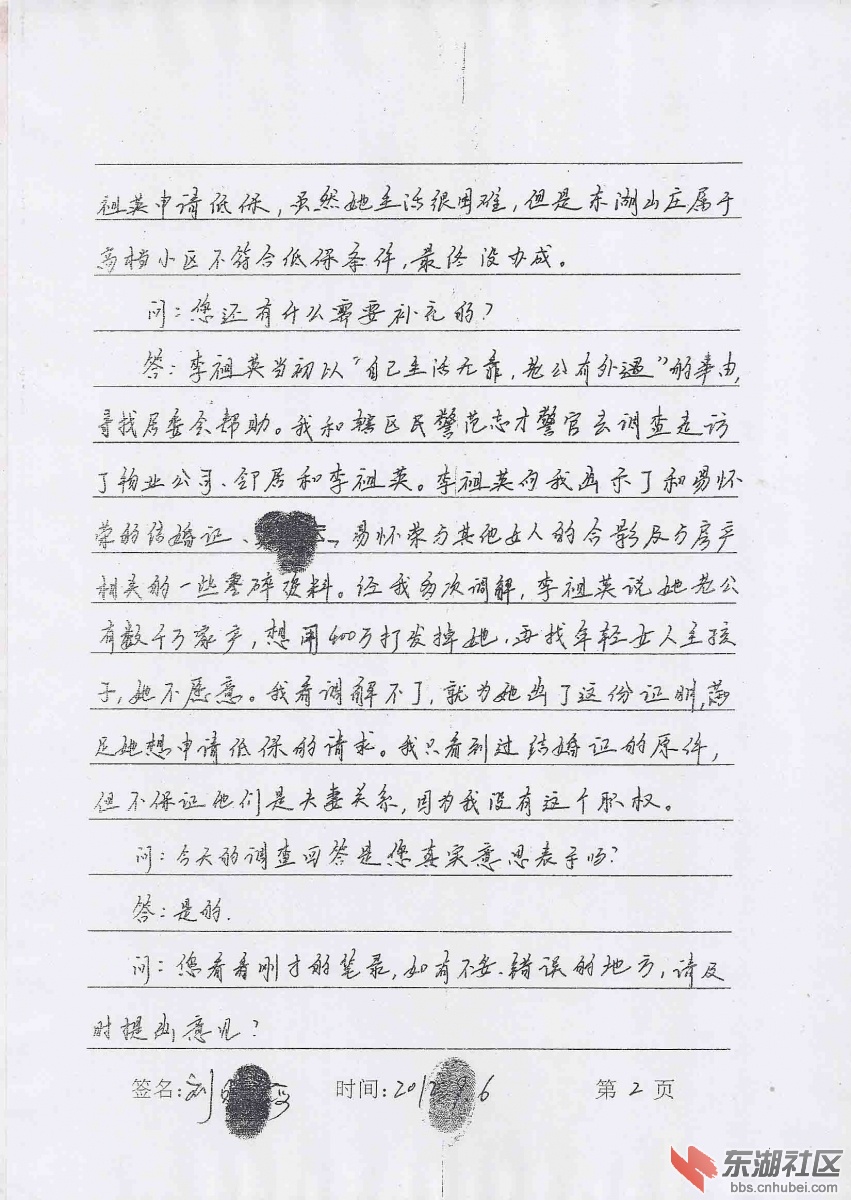 祖英申请低保，虽然她生活很困难，但是东湖山庄属于
高档小区不符合低保条件，最终没办成。
问：您还有什么需要补充的？
答：李祖英当初以“自己生活无靠，老公有外遇”的事由，
寻找居委会帮助。我和辖区民警范志才警官去调查走访
了物业公司、邻居和李祖英。李祖英向我出示了和易怀
荣的结婚证、易怀荣与其他女人的合影及与房产
相关的一些零碎资料。经我多次调解，李祖英说她老公
有数千万家产，想用400万打发掉她，再找年轻女人生孩
子，她不愿意。我看调解不了，就为她出了这份证明，满
足她想申请低保的请求。我只看到过结婚证的原件，
但不保证他们是夫妻关系，因为我没有这个职权。
问：今天的调查回答是您真实意思表示吗？
答：是的.
问：您看看刚才的笔录，如有不妥、错误的地方，请及
时提出意见？
签名：刘 时间：2012.9.6 第2页
东湖社区
bbs.cnhubei.com